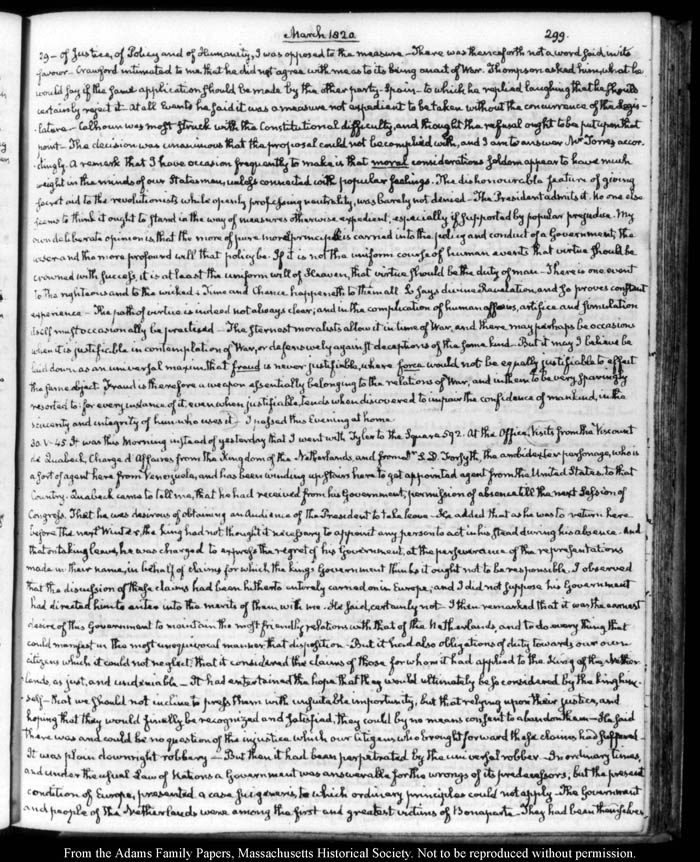 March 1820. 299.
29 – of Justice, of Policy and of Humanity, I was opposed to the measure – There was thenceforth not a word said in its
favour – Crawford intimated to me that he did not agree with me as to its being an act of War. Thompson asked him what he
would say if the same application should be made by the other party – Spain – to which he replied laughing that he should
certainly reject it. At all Events he said it was a measure not expedient to be taken without the concurrence of the Legis-
lature – Calhoun was most struck with the Constitutional difficulty, and thought the refusal ought to be put upon that
point – The decision was unanimous that the proposal could not be complied with, and I am to answer Mr Torres accor-
dingly. A remark that I have occasion frequently to make is that moral considerations seldom appear to have much
weight in the minds of our Statesmen, unless connected with popular feelings. The dishonourable feature of giving
secret aid to the revolutionists while openly professing neutrality, was barely not denied – The President admits it. No one else
seems to think it ought to stand in the way of measures otherwise expedient, especially if supported by popular prejudice. My
own deliberate opinion is that the more of pure moral principle is carried into the policy and conduct of a Government, the
wiser and the more profound will that policy be. If it is not the uniform course of human events that virtue should be
crowned with success, it is at least the uniform will of Heaven, that virtue should be the duty of man – There is one event
to the righteous and to the wicked; Time and Chance happeneth to them all. So says divine Revelation, and so proves constant
experience – The path of virtue is indeed not always clear; and in the complication of human affairs, artifice and simulation
itself must occasionally be practised – The sternest moralists allow it in time of War, and there may perhaps be occasions
when it is justifiable in contemplation of War, or defensively against deceptions of the same kind. But it may I believe be
laid down as an universal maxim that fraud is never justifiable, where force would not be equally justifiable to effect
the same object. Fraud is therefore a weapon essentially belonging to the relations of War, and in them to be very sparingly
resorted to: for every instance of it, even when justifiable, tends when discovered to impair the confidence of mankind, in the
sincerity and integrity of him who uses it. I passed this Evening at home.
30. V–45. It was this Morning instead of yesterday that I went with Tyler to the Square 592. At the Office, Visits from the Viscount
de Quabeck, Chargé d'Affaires from the Kingdom of the Netherlands and from Mr. S. D. Forsyth, the ambidexter personage, who is
a sort of agent here from Venezuela, and has been winding up stairs here to get appointed agent from the United States, to that
Country. Quabeck came to tell me, that he had received from his Government, permission of absence till the next Session of
Congress. That he was desirous of obtaining an Audience of the President to take leave – He added that as he was to return here
before the next Winter, the king had not thought it necessary to appoint any person to act in his stead during his absence. And
that on taking leave, he was charged to express the regret of his Government, at the perseverance of the representations
made in their name, in behalf of claims for which the king's Government thinks it ought not to be responsible. I observed
that the discussion of these claims had been hitherto entirely carried on in Europe; and I did not suppose his Government
had directed him to enter into the merits of them with me. He said, certainly not – I then remarked that it was the earnest
desire of this Government to maintain the most friendly relations with that of the Netherlands, and to do every thing that
could manifest in the most unequivocal manner that disposition – But it had also obligations of duty towards our own
citizens which it could not neglect; that it considered the claims of those for whom it had applied to the King of the Nether-
lands, as just, and undeniable – It had entertained the hope that they would ultimately be so considered by the king him-
self – that we should not incline to press them with unsuitable importunity; but that relying upon their justice, and
hoping that they would finally be recognized and satisfied, they could by no means consent to abandon them – He said
there was and could be no question of the injustice which our Citizens who brought forward these claims had suffered –
It was plain downright robbery – But then it had been perpetrated by the universal robber – In ordinary times,
and under the usual Law of Nations a Government was answerable for the wrongs of its predecessors; but the present
condition of Europe, presented a case sui generis, to which ordinary principles could not apply – The Government
and people of the Netherlands were among the first and greatest victims of Bonaparte – They had been themselves
From the Adams Family Papers, Massachusetts Historical Society. Not to be reproduced without permission.